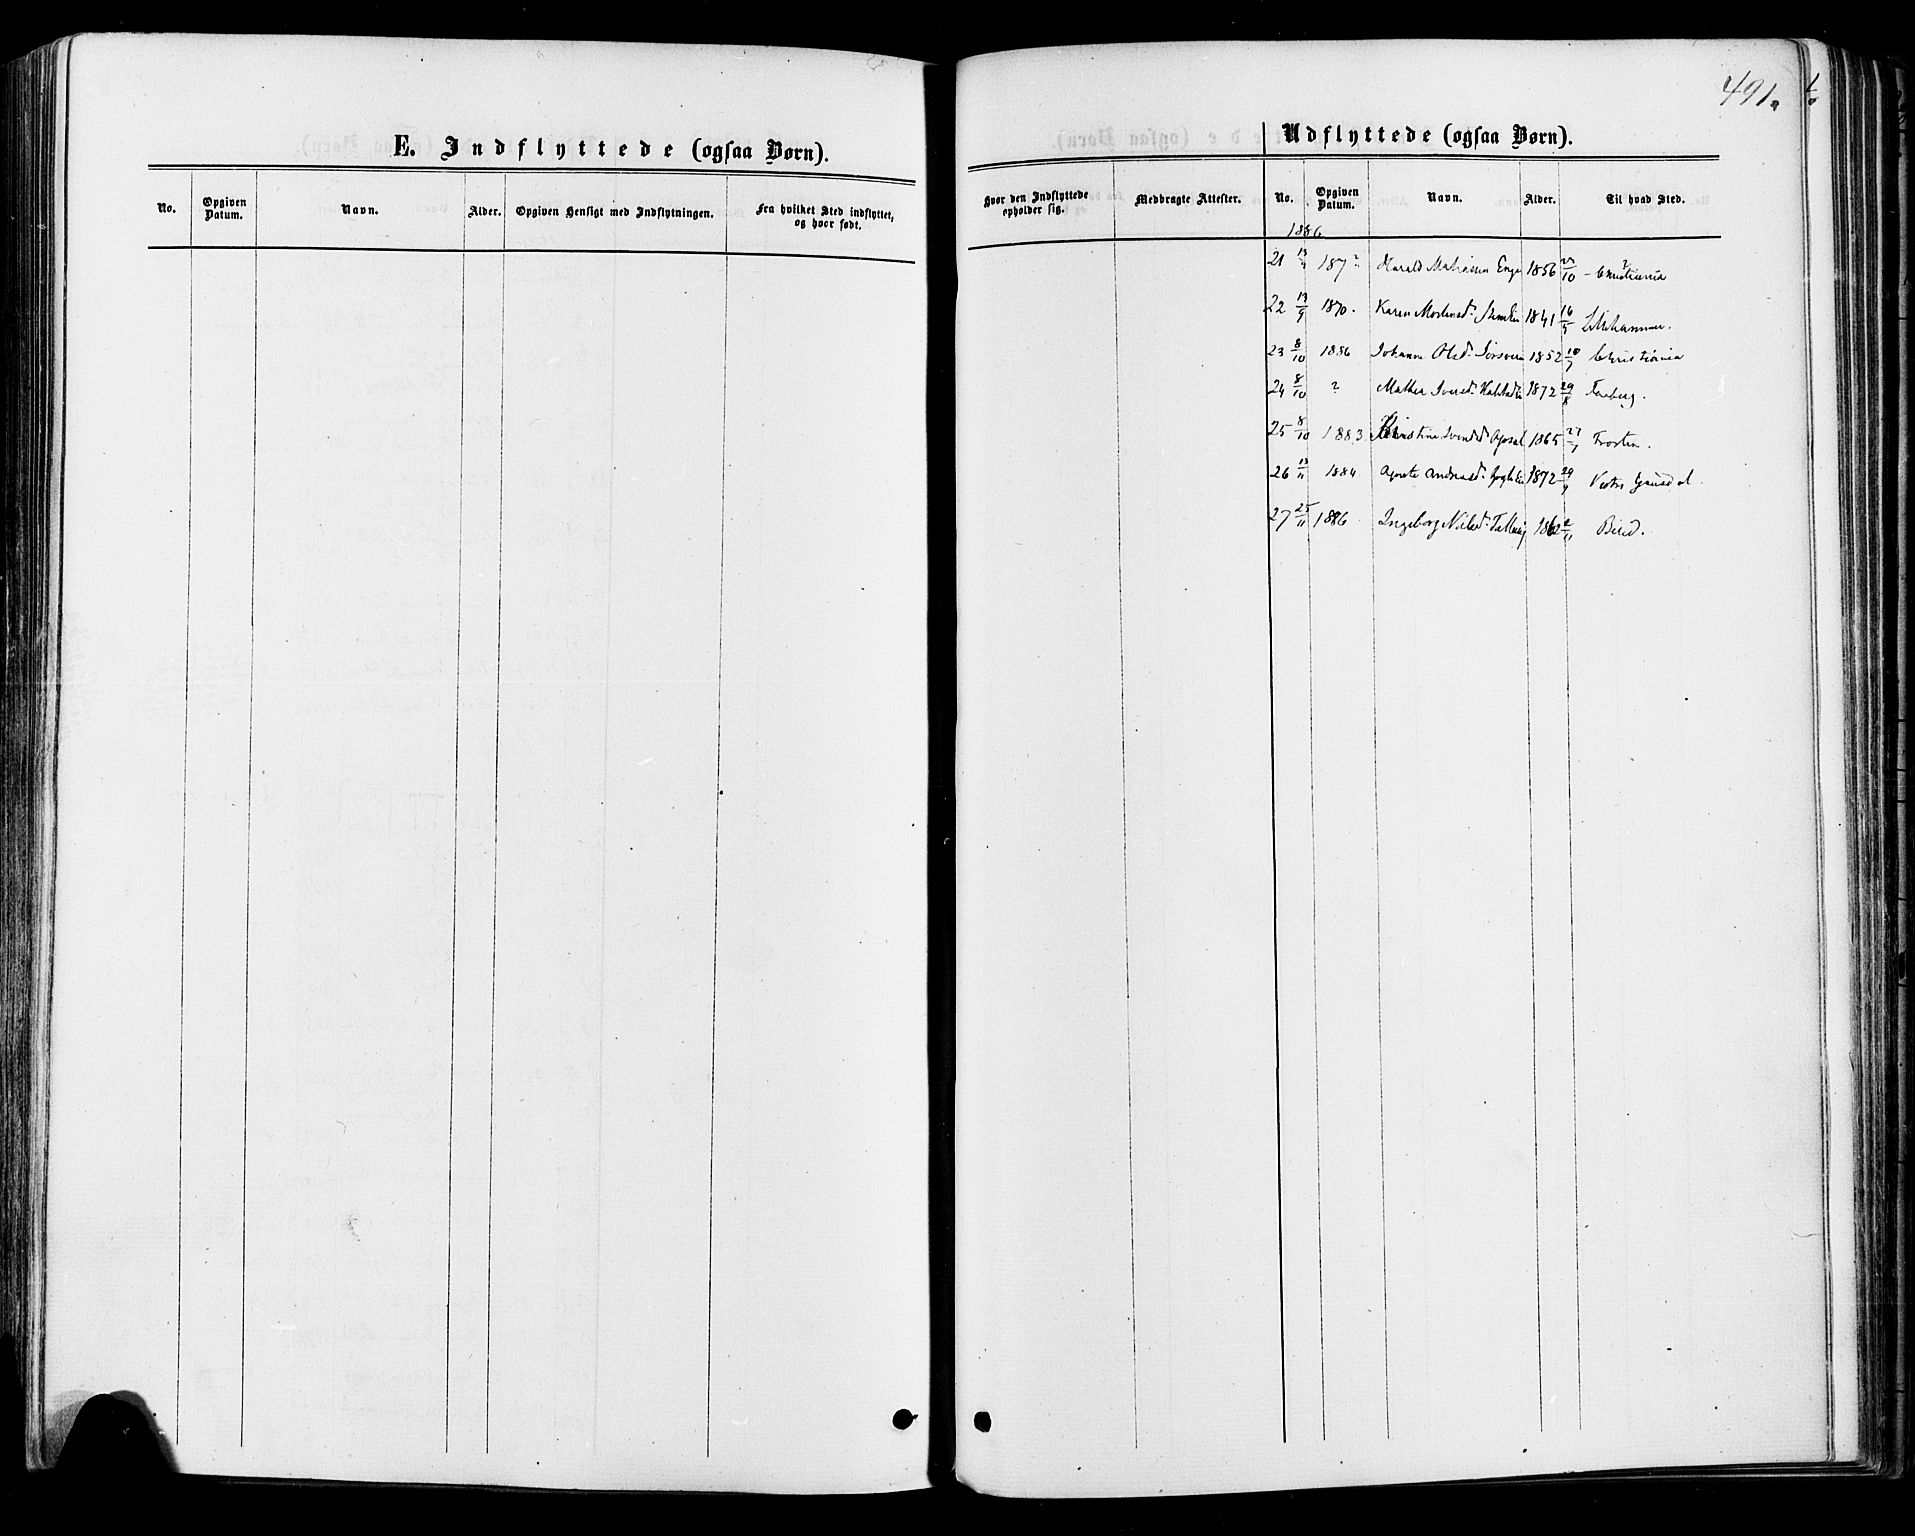 491.
E. Indflyttede (ogsaa Børn).
No. Opgiven Datum. Navn. Alder. Opgiven Hensigt med Indflytningen. Fra hvilket Sted indflyttet, og hvor født.
Udflyttede (ogsaa Børn).
Hvor den Indflyttede opholder sig. Medbragte Attester. No. Opgiven Datum. Navn. Alder. Til hvad Sted.
1886
21 187? Harald 1856 10 - Christiania
22 13/9 1870. Karen Mortensd. 1841 16 Lillehammer.
23 8/10 1886 Johanne Olsd. 1852 10/7 Christiania
24 8/10 ? Mathea Iversd. 1872 29/8 Faaberg.
25 8/10 1883 Christine 1865 27 Trosten.
26 13/11 1884 Agnete Andreasd. 1872 29/9 Vestre Gausdal.
27 25/11 1886 Ingeborg Nilsd. 1862 2/11 Birid.